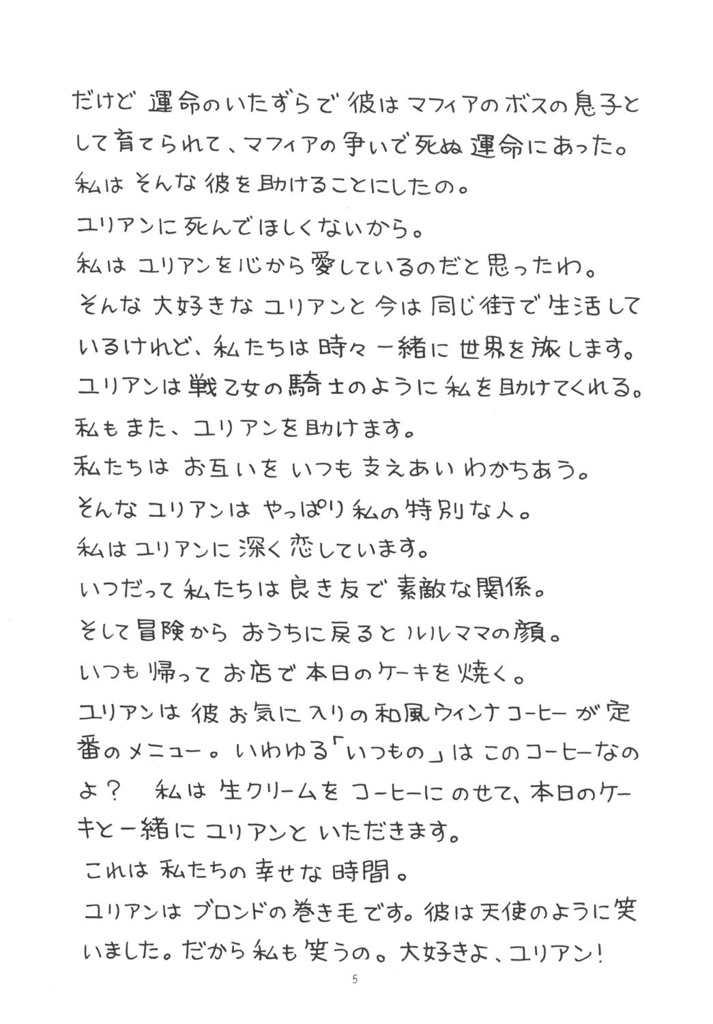 だけど 運命のいたずらで 彼は マフィアの ボスの 息子と
して 育てられて、マフィアの 争いで 死ぬ 運命にあった。
私は そんな 彼を 助けることにしたの。
ユリアンに 死んで ほしくないから。
私は ユリアンを 心から 愛しているのだと 思ったわ。
そんな 大好きな ユリアンと 今は 同じ街で 生活して
いるけれど、私たちは 時々 一緒に 世界を 旅します。
ユリアンは 戦乙女の 騎士のように 私を 助けてくれる。
私も また、ユリアンを 助けます。
私たちは お互いを いつも 支えあい わかちあう。
そんな ユリアンは やっぱり 私の 特別な人。
私は ユリアンに 深く 恋しています。
いつだって 私たちは 良き友で 素敵な 関係。
そして 冒険から おうちに 戻ると ルルママの顔。
いつも 帰って お店で 本日のケーキを 焼く。
ユリアンは 彼 お気に 入りの 和風 ウィンナ コーヒー が 定
番の メニュー。いわゆる「いつもの」は このコーヒーなの
よ? 私は 生クリームを コーヒーに のせて、本日のケー
キと 一緒に ユリアンと いただきます。
これは 私たちの 幸せな 時間。
ユリアンは ブロンドの 巻き毛です。彼は 天使のように 笑
いました。だから 私も 笑うの。大好きよ、ユリアン!
5